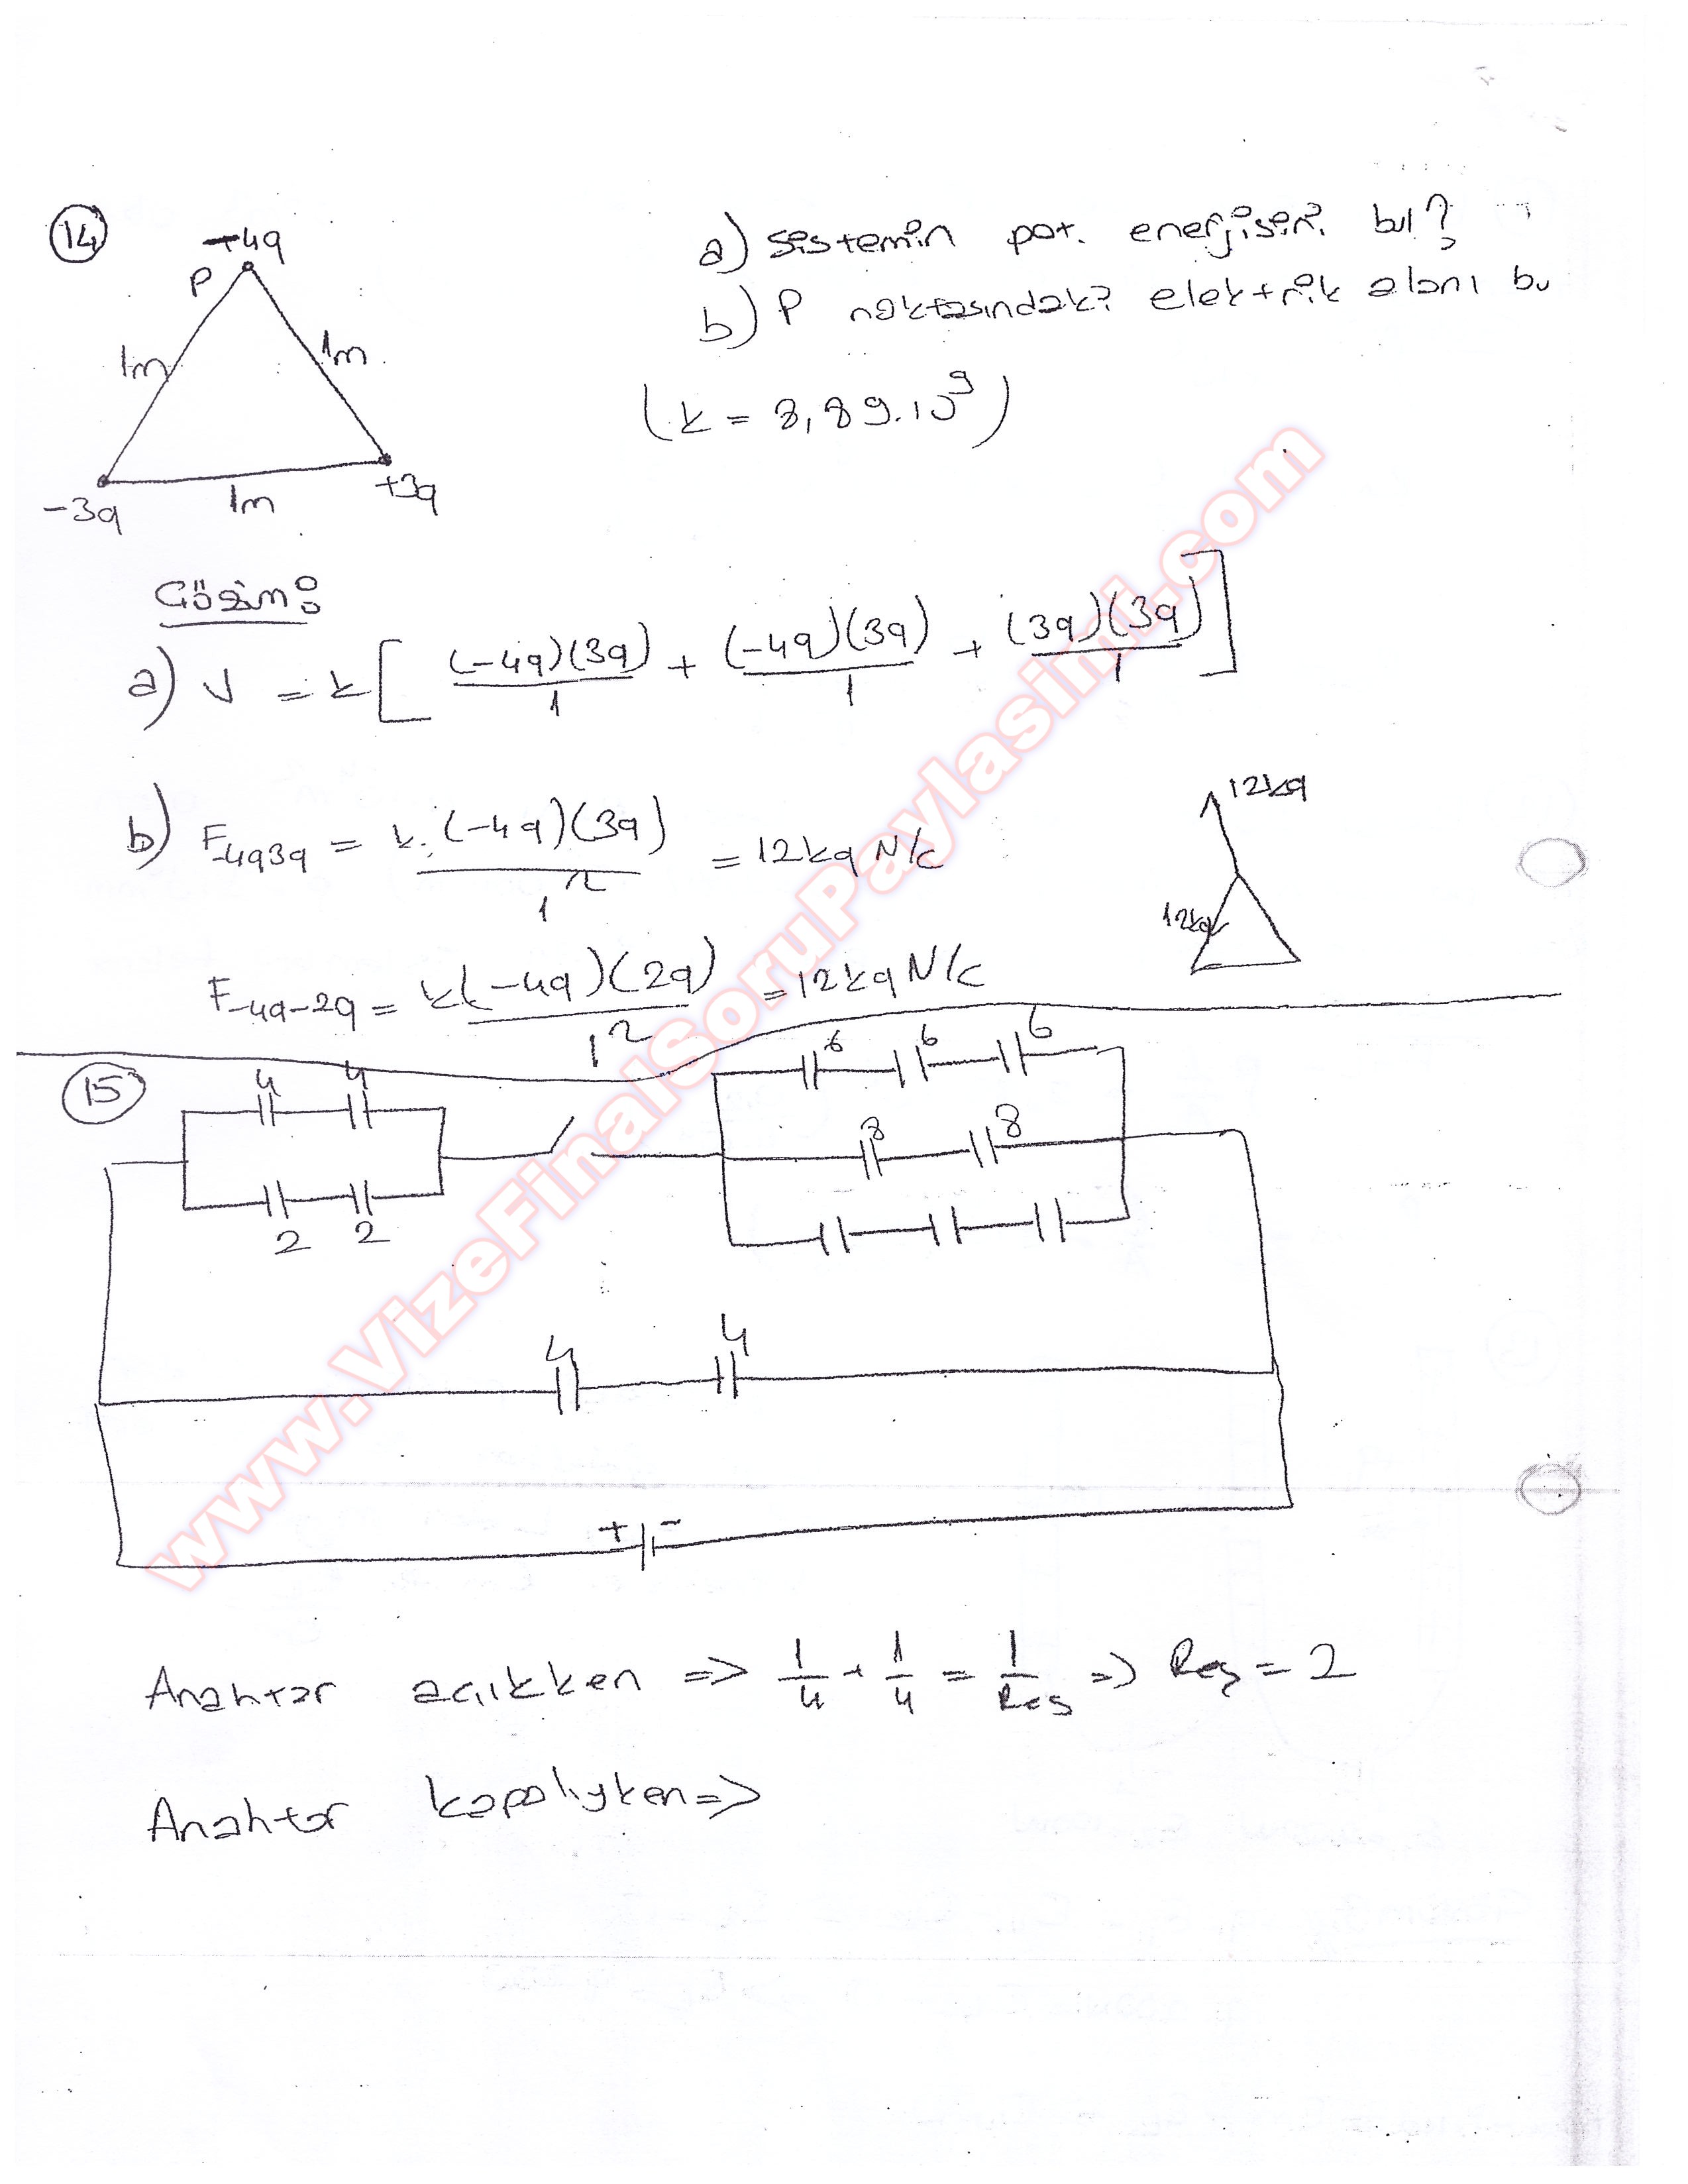 14
+4q
P
1m
1m
-3q
1m
+3q
a) sistemin pot. enerjisini bul?
b) P noktasındaki elektrik alanı bu
(k = 8,89.10^9)
Çözüm:
a) V = k [ (-4q)(3q)/1 + (-4q)(3q)/1 + (3q)(3q)/1 ]
b) F-4q3q = k.(-4q)(3q)/1^2 = 12kq N/c
12kq
12kq
F-4q-2q = k(-4q)(2q)/1^2 = 12kq N/c
15
4 4
2 2
6 6 6
8 8
4 4
+ -
Anahtar açıkken => 1/4 + 1/4 = 1/Reş => Reş = 2
Anahtar kapalıyken =>
www.VizeFinalSoruPaylasimi.com